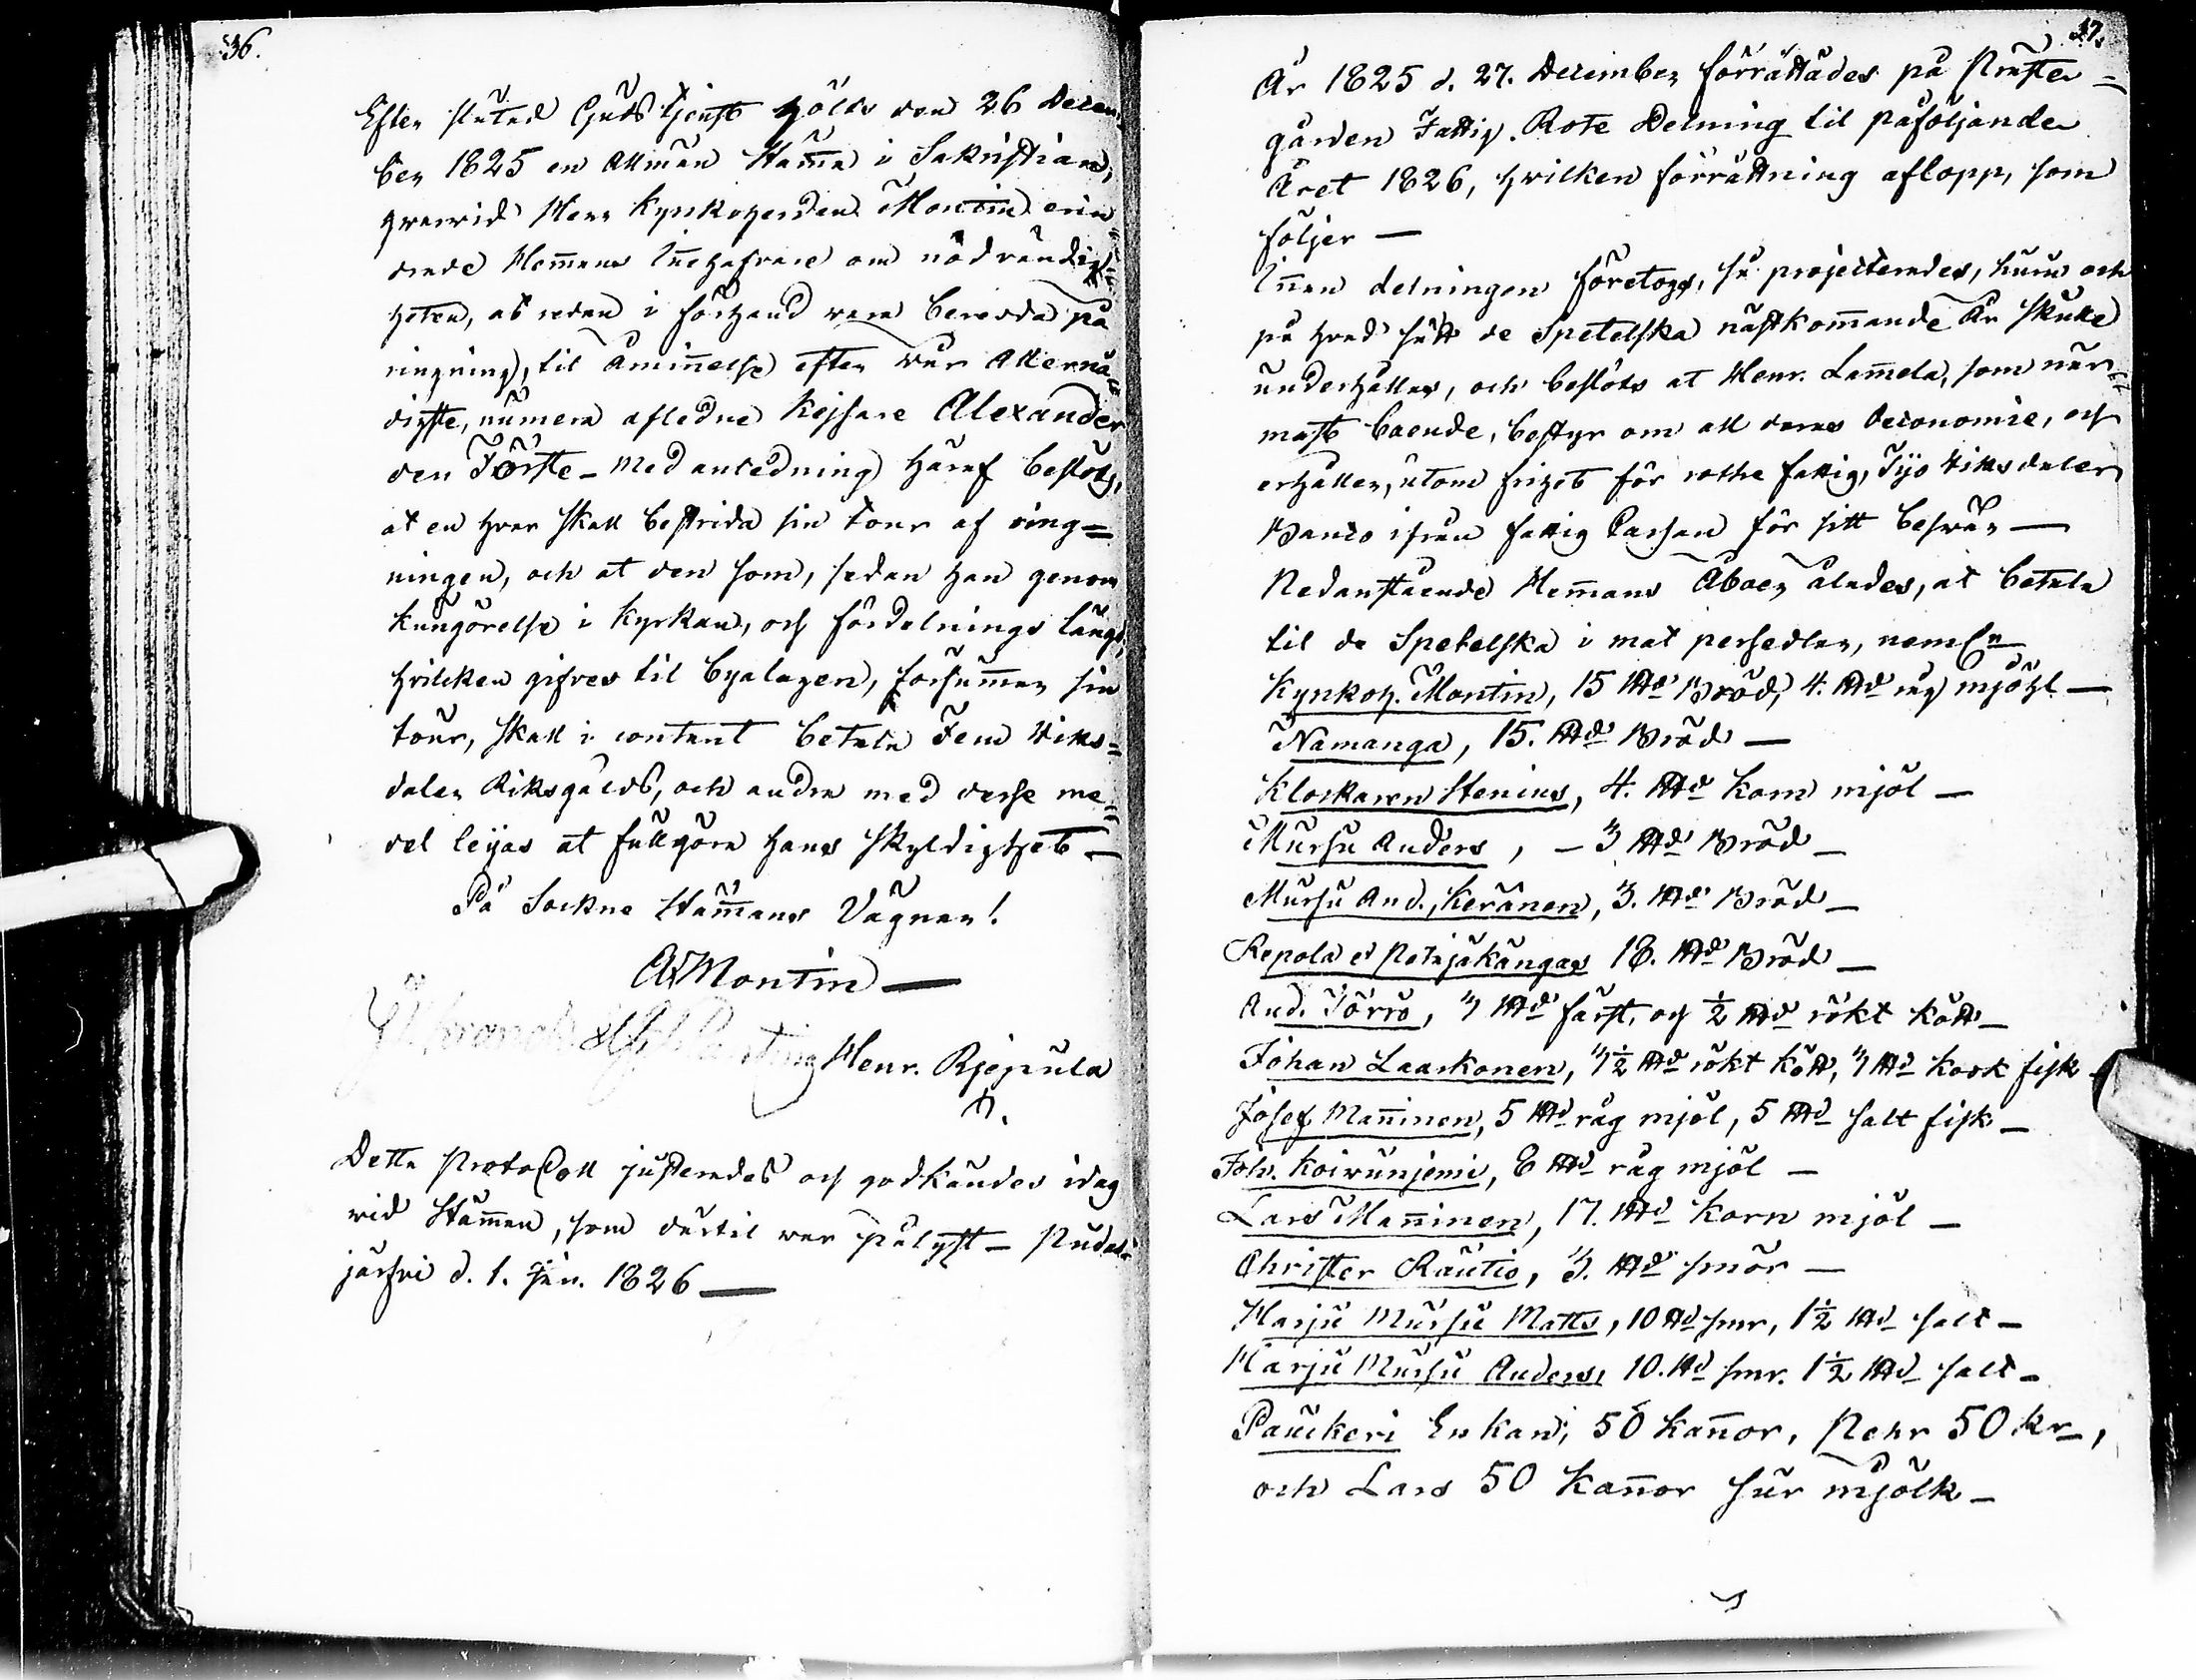 36.
Efter slutad Guds tjenst hölts den 26 Decem-
ber 1825 en Allmän Stämma i Sakristian,
hvarvid Herr Kyrkoherden Montin erin=
drade Hemmans Innehafvare om nödvändig=
heten, at redan i förhand vara beredda på
ringning, til åminnelse efter vår Allernå=
digste, numera aflednе Kejsare Alexander
den Förste – Med anledning häraf beslöts,
at en hvar skall bestrida sin tour af ring=
ningen, och at den som, sedan han genom
kungörelse i Kyrkan, och fördelnings längd,
hvilcken gifves til byalagen, försummar sin
tour, skall i contant betala Fem Riks=
daler Riksgälds, och andra med desse me=
del lejas at fullgöra hans skyldighet —
På Sockne Stämmans Vägnar!
A Montin —
Henr. Rjepula
Detta Protocoll justerades och godkändes idag
vid Stämman, som därtil var pålyst – Pudas-
järfvi d. 1. Jan. 1826 —
37.
År 1825 d. 27. December förrättades på Prästе=
gården Fattig. Rote Delning til påföljande
Året 1826, hvilken förrättning aflopp, som
följer —
Innan delningen företogs, så projecterades, huru och
på hvad sätt de Spetelska nästkommande År skulle
underhållas, och beslöts at Henr. Lammela, som när=
mast boende, bestyr om all deras Oeconomie, och
erhåller, utom frihet för rothe fattig, Tijo Riksdaler
Banco ifrån fattig Cassan för sitt besvär —
Nedanstående Hemmans Åboer ålades, at betala
til de Spetelska i mat persedlar, neml:n
Kyrkoh. Montin, 15 ℔ Bröd, 4. ℔ råg mjöhl —
Námanga, 15. ℔ Bröd —
Klockaren Stenius, 4. ℔ Korn mjöl —
Mursu Anders, – 3 ℔ Bröd —
Mursu And. Keränen, 3. ℔ Bröd —
Repola et Petäjäkangas 18. ℔ Bröd —
And. Törrö, 1 ℔ färst, och ½ ℔ rökt kött —
Johan Laarkonen, 1½ ℔ rökt kött, 1 ℔ kock fisk –
Josef Manninen, 5 ℔ råg mjöl, 5 ℔ salt fisk —
Joh. Koivuniemi, 6 ℔ råg mjöl —
Lars Manninen, 17. ℔ korn mjöl —
Christer Rautio, 3. ℔ smör —
Harju Mursu Matts, 10 ℔ smr, 1½ ℔ salt –
Harju Mursu Anders, 10. ℔ smr. 1½ ℔ salt –
Pauckeri Enkan, 50 kannor, Pehr 50 kr,
och Lars 50 Kannor sur mjölk —